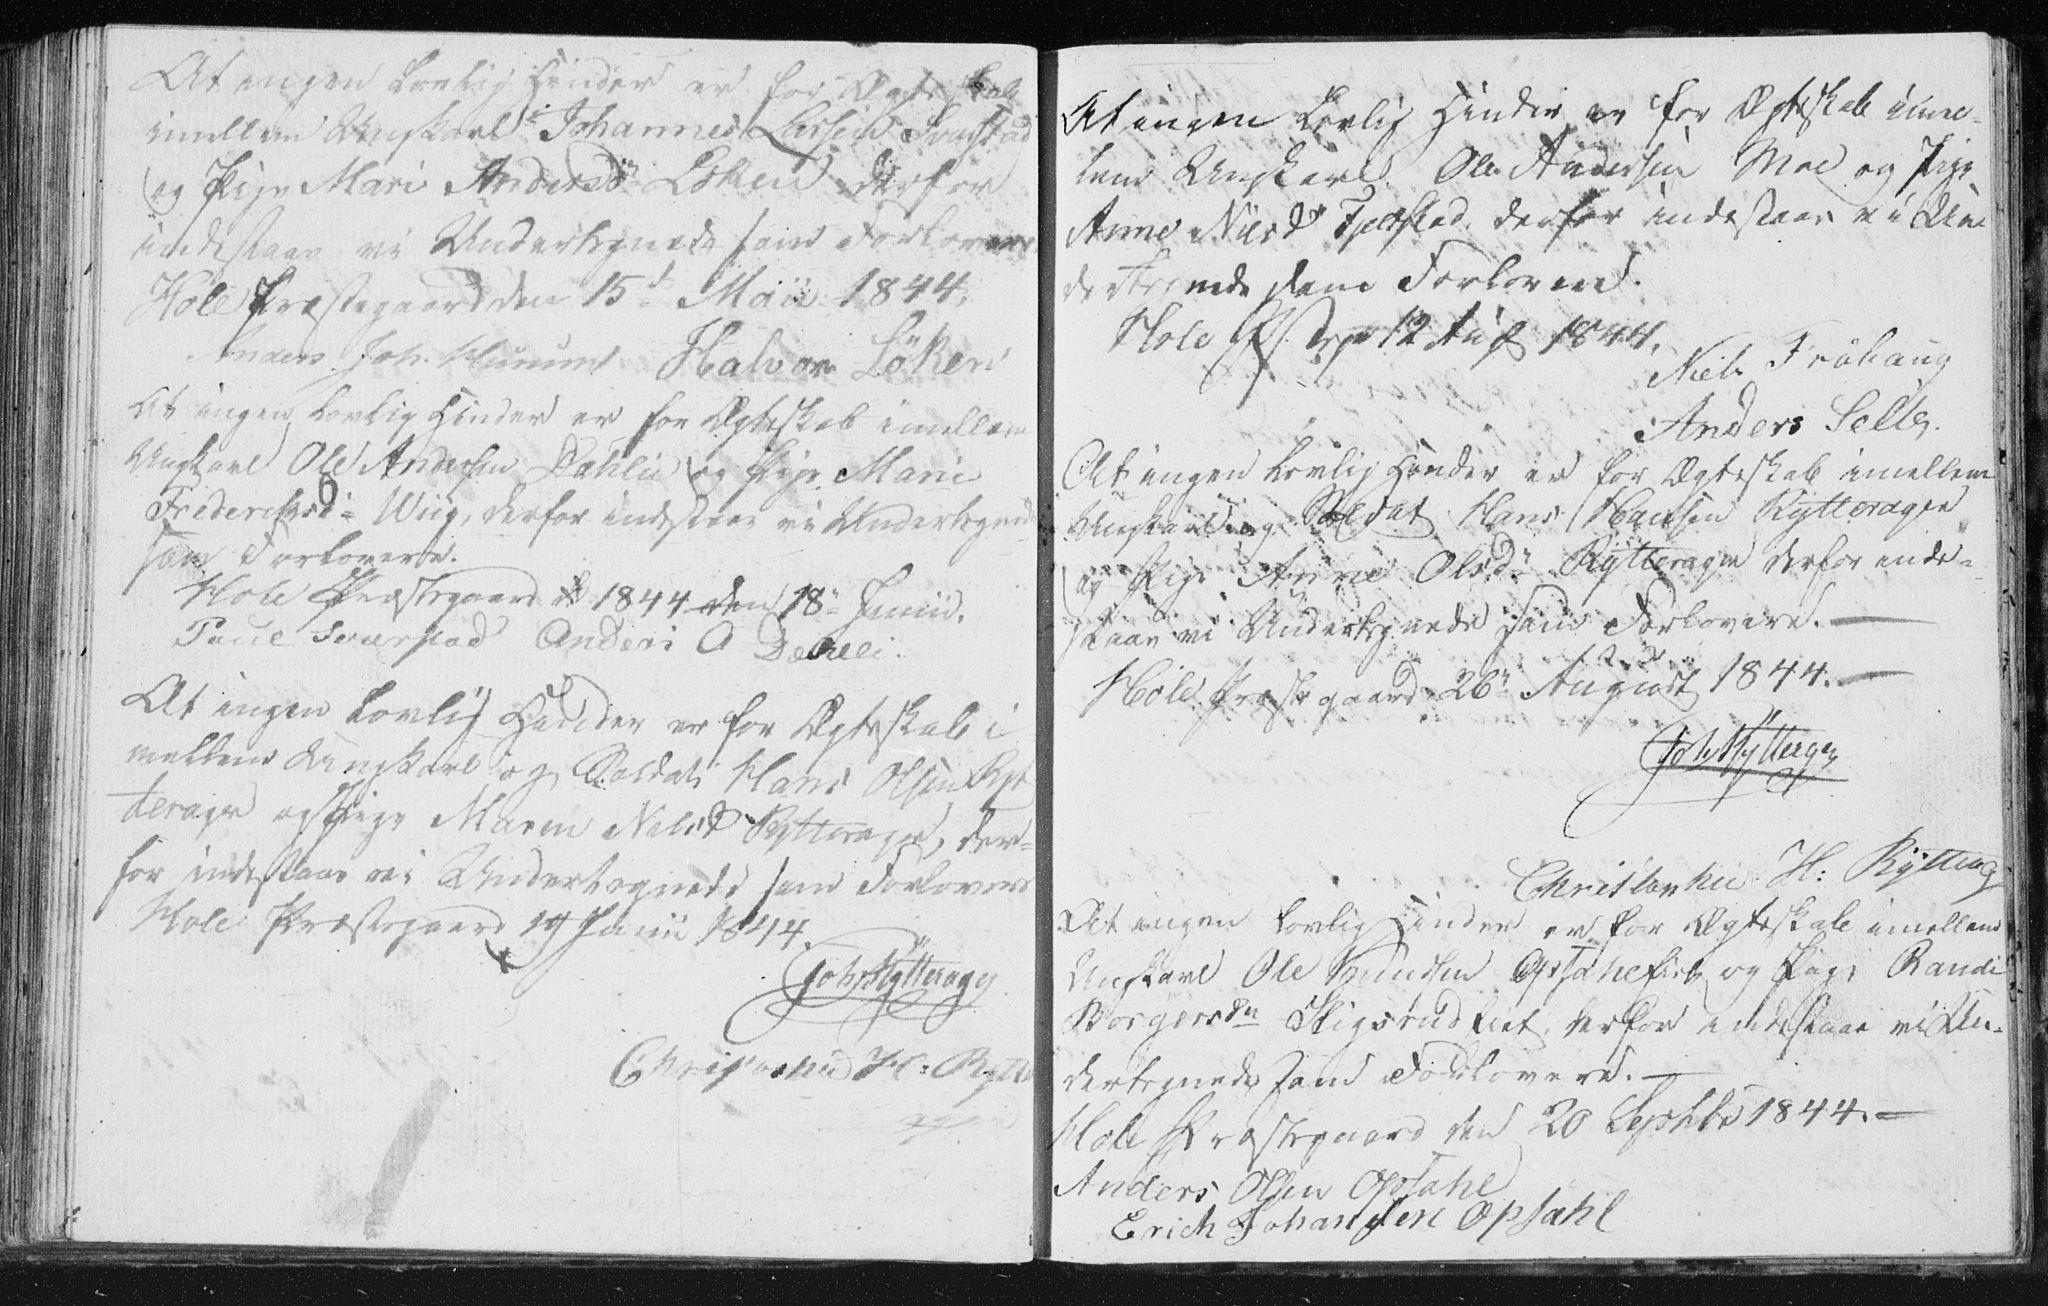 At ingen Lovlig Hinder er for Ægteskab
imellem Ungkarl Johannes Larsen Svarstad
og Pige Mari Andersd. Løken derfor
indestaar vi Undertegnede som Forlovere
Hole Præstegaard den 15de Maii 1844.
Anders Joh. Hurum Halvor Löken
At ingen Lovlig Hinder er for Ægteskab imellem
Ungkarl Ole Andersen Dæhlie og Pige Marie
Frederichsd. Wiig, derfor indestaar vi Undertegnede
som Forlovere.
Hole Præstegaard 1844 den 18. Junii.
Paul Svarstad Anders A Dæhli.
At ingen Lovlig Hinder er for Ægteskab i-
mellem Ungkarl og Soldat Hans Olsen Ryt
terager og Pige Maren Nilsd Rytterager, der-
for indestaar vi Undertegnede som Forlovere
Hole Præstegaard 19 Junii 1844.
Joh Rÿtterager
Christophe H: Rytte
At ingen Lovlig Hinder er for Ægteskab ime-
lem Ungkarl Ole Andersen Moe og Pige
Anne Nilsd Fjeldstad, derfor indestaar vi Un
dertegnede som Forlovere.
Hole 12 Aug 1844.
Niels Fröhaug
Anders Selte.
At ingen Lovlig Hinder er for Ægteskab imellem
Ungkarl og Soldat Hans Hansen Rytterager
og Pige Anne Olsd. Rytterager derfor inde-
staar vi Undertegnede som Forlovere.
Hole Præstegaard 26. August 1844.
Joh Rÿtterager
Christophe H: Rytterag
At ingen Lovlig Hinder er for Ægteskab imellem
Ungkarl Ole Knudsen Opsahleiet og Pige Randi
Borgersdn Stigsrudeiet, derfor indestaar vi Un-
dertegnede som Forlovere.
Hole Præstegaard den 20 Septbr 1844.
Anders Olsen Opsahl
Erich Johansen Opsahl